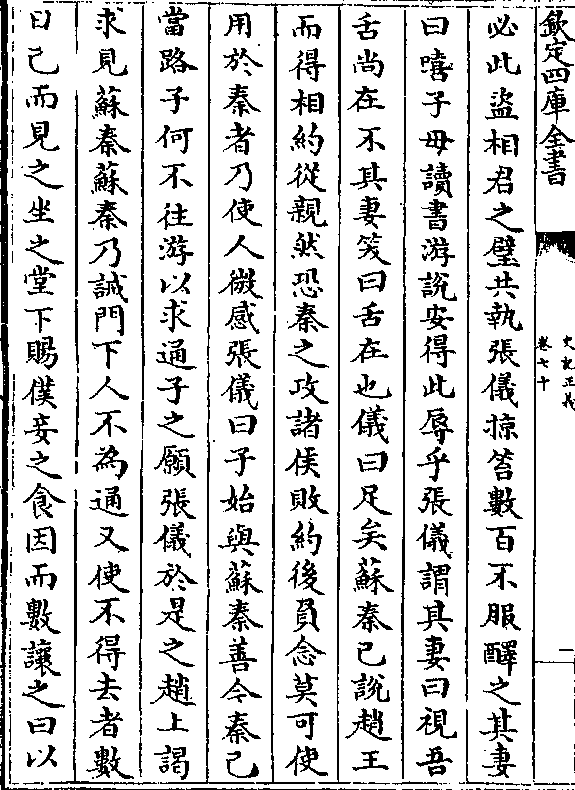 欽定四庫全書
史記正義
卷七十
一
必此盜相君之璧共執張儀掠笞數百不服醳之其妻
曰嘻子毋讀書游說安得此辱乎張儀謂其妻曰視吾
舌尚在不其妻笑曰舌在也儀曰足矣蘇秦已說趙王
而得相約從親然恐秦之攻諸侯敗約後負念莫可使
用於秦者乃使人微感張儀曰子始與蘇秦善今秦已
當路子何不往游以求通子之願張儀於是之趙上謁
求見蘇秦蘇秦乃誡門下人不為通又使不得去者數
日已而見之坐之堂下賜僕妾之食因而數讓之曰以